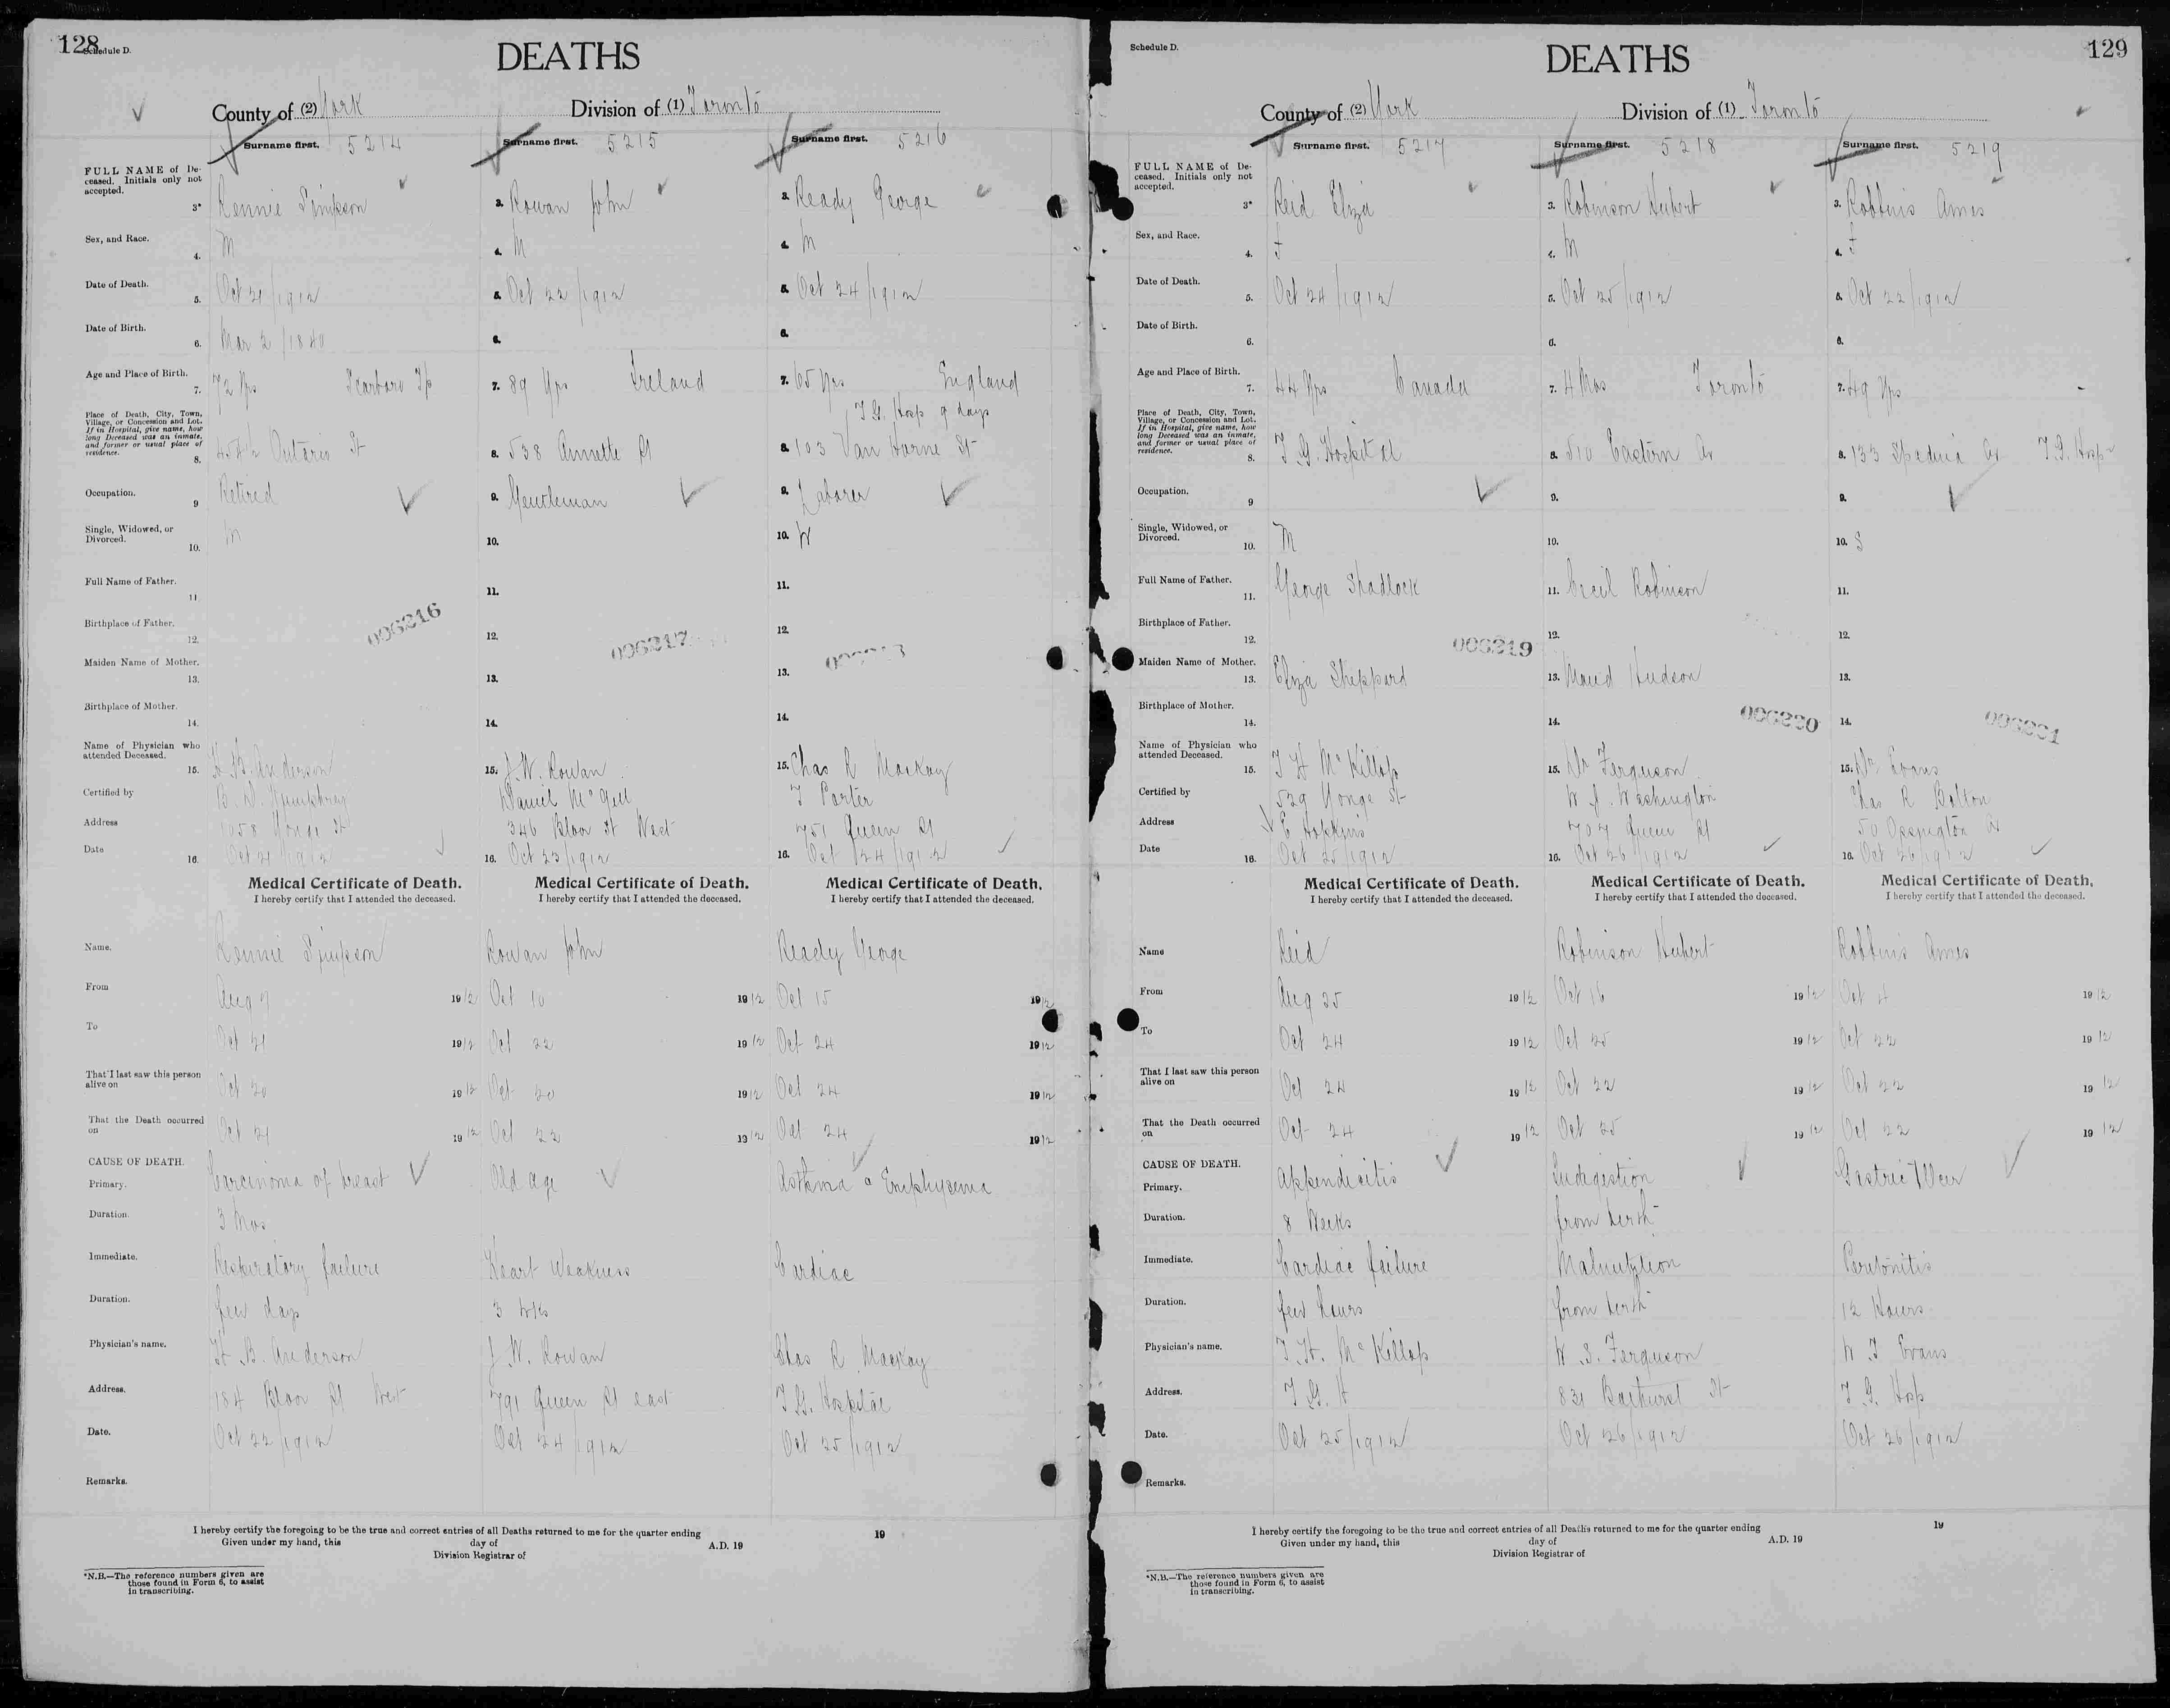 128
Schedule D.
DEATHS
County of (2) York Division of (1) Toronto
Surname first. 5214
Surname first. 5215
Surname first. 5216
FULL NAME of Deceased. Initials only not accepted.
3* Rennie Simpson
3. Rowan John
3. Ready George
Sex, and Race.
4. M
4. M
4. M
Date of Death.
5. Oct 21/1912
5. Oct 22/1912
5. Oct 24/1912
Date of Birth.
6. Mar 2/1840
6.
6.
Age and Place of Birth.
7. 72 Yrs Scarboro Tp
7. 89 Yrs Ireland
7. 65 Yrs England
Place of Death, City, Town, Village, or Concession and Lot. If in Hospital, give name, how long Deceased was an inmate, and former or usual place of residence.
8. Ontario St
8. 538 Annette St
T.G. Hosp 9 days
8. 103 Van Horne St
Occupation.
9 Retired
9. Gentleman
9. Laborer
Single, Widowed, or Divorced.
10. M
10.
10. W
Full Name of Father.
11.
11.
11.
Birthplace of Father.
12.
12.
12.
006216
006217
Maiden Name of Mother.
13.
13.
13.
Birthplace of Mother.
14.
14.
14.
Name of Physician who attended Deceased.
15. H. B. Anderson
15. J. W. Rowan
15. Chas R Mackay
Certified by
B. D. Humphrey
Daniel McGill
T Porter
Address
1058 Yonge St
346 Bloor St West
751 Queen St
Date
16. Oct 21/1912
16. Oct 23/1912
16. Oct 24/1912
Medical Certificate of Death.
I hereby certify that I attended the deceased.
Medical Certificate of Death.
I hereby certify that I attended the deceased.
Medical Certificate of Death.
I hereby certify that I attended the deceased.
Name.
Rennie Simpson
Rowan John
Ready George
From
Aug 7 1912
Oct 10 1912
Oct 15 1912
To
Oct 21 1912
Oct 22 1912
Oct 24 1912
That I last saw this person alive on
Oct 20 1912
Oct 20 1912
Oct 24 1912
That the Death occurred on
Oct 21 1912
Oct 22 1912
Oct 24 1912
CAUSE OF DEATH.
Primary.
Carcinoma of breast
Old age
Asthma & Emphysema
Duration.
3 Mos
Immediate.
Respiratory failure
Heart Weakness
Cardiac
Duration.
few days
3 wks
Physician's name.
H. B. Anderson
J. W. Rowan
Chas R Mackay
Address.
184 Bloor St West
791 Queen St east
T.G. Hospital
Date.
Oct 22/1912
Oct 24/1912
Oct 25/1912
Remarks.
I hereby certify the foregoing to be the true and correct entries of all Deaths returned to me for the quarter ending 19
Given under my hand, this day of A.D. 19
Division Registrar of
*N.B.—The reference numbers given are those found in Form 6, to assist in transcribing.
Schedule D.
DEATHS
129
County of (2) York Division of (1) Toronto
Surname first. 5217
Surname first. 5218
Surname first. 5219
FULL NAME of Deceased. Initials only not accepted.
3* Reid Eliza
3. Robinson Hubert
3. Robbins Ames
Sex, and Race.
4. F
4. M
4. F
Date of Death.
5. Oct 24/1912
5. Oct 25/1912
5. Oct 22/1912
Date of Birth.
6.
6.
6.
Age and Place of Birth.
7. 44 Yrs Canada
7. 4 Mos Toronto
7. 49 Yrs -
Place of Death, City, Town, Village, or Concession and Lot. If in Hospital, give name, how long Deceased was an inmate, and former or usual place of residence.
8. T.G. Hospital
8. 510 Eastern Av
8. 133 Spadina Av T.G. Hosp
Occupation.
9
9.
9.
Single, Widowed, or Divorced.
10. M
10.
10. S
Full Name of Father.
11. George Shadlock
11. Cecil Robinson
11.
Birthplace of Father.
12.
12.
12.
006219
Maiden Name of Mother.
13. Eliza Sheppard
13. Maud Hudson
13.
Birthplace of Mother.
14.
14.
14.
006220
006221
Name of Physician who attended Deceased.
15. T H McKillop
15. Dr Ferguson
15. Dr Evans
Certified by
529 Yonge St
W. J. Washington
Chas R Bolton
Address
E Hopkins
707 Queen St
50 Ossington Av
Date
16. Oct 25/1912
16. Oct 26/1912
16. Oct 26/1912
Medical Certificate of Death.
I hereby certify that I attended the deceased.
Medical Certificate of Death.
I hereby certify that I attended the deceased.
Medical Certificate of Death.
I hereby certify that I attended the deceased.
Name
Reid
Robinson Hubert
Robbins Ames
From
Aug 25 1912
Oct 16 1912
Oct 4 1912
To
Oct 24 1912
Oct 25 1912
Oct 22 1912
That I last saw this person alive on
Oct 24 1912
Oct 22 1912
Oct 22 1912
That the Death occurred on
Oct 24 1912
Oct 25 1912
Oct 22 1912
CAUSE OF DEATH.
Primary.
Appendicitis
Indigestion
Gastric Ulcer
Duration.
8 Weeks
from birth
Immediate.
Cardiac failure
Malnutrition
Peritonitis
Duration.
few hours
from birth
12 Hours
Physician's name.
T. H. McKillop
W. S. Ferguson
W T Evans
Address.
T.G.H
831 Bathurst St
T.G. Hosp
Date.
Oct 25/1912
Oct 26/1912
Oct 26/1912
Remarks.
I hereby certify the foregoing to be the true and correct entries of all Deaths returned to me for the quarter ending 19
Given under my hand, this day of A.D. 19
Division Registrar of
*N.B.—The reference numbers given are those found in Form 6, to assist in transcribing.